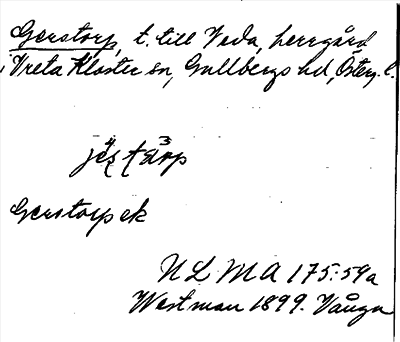 Gerstorp, t. till Veda, herrgård
i Vreta Kloster sn, Gullbergs hd, Österg. l.
Gerstorp ek
NLMA 175:59a
Westman 1899. Vånga